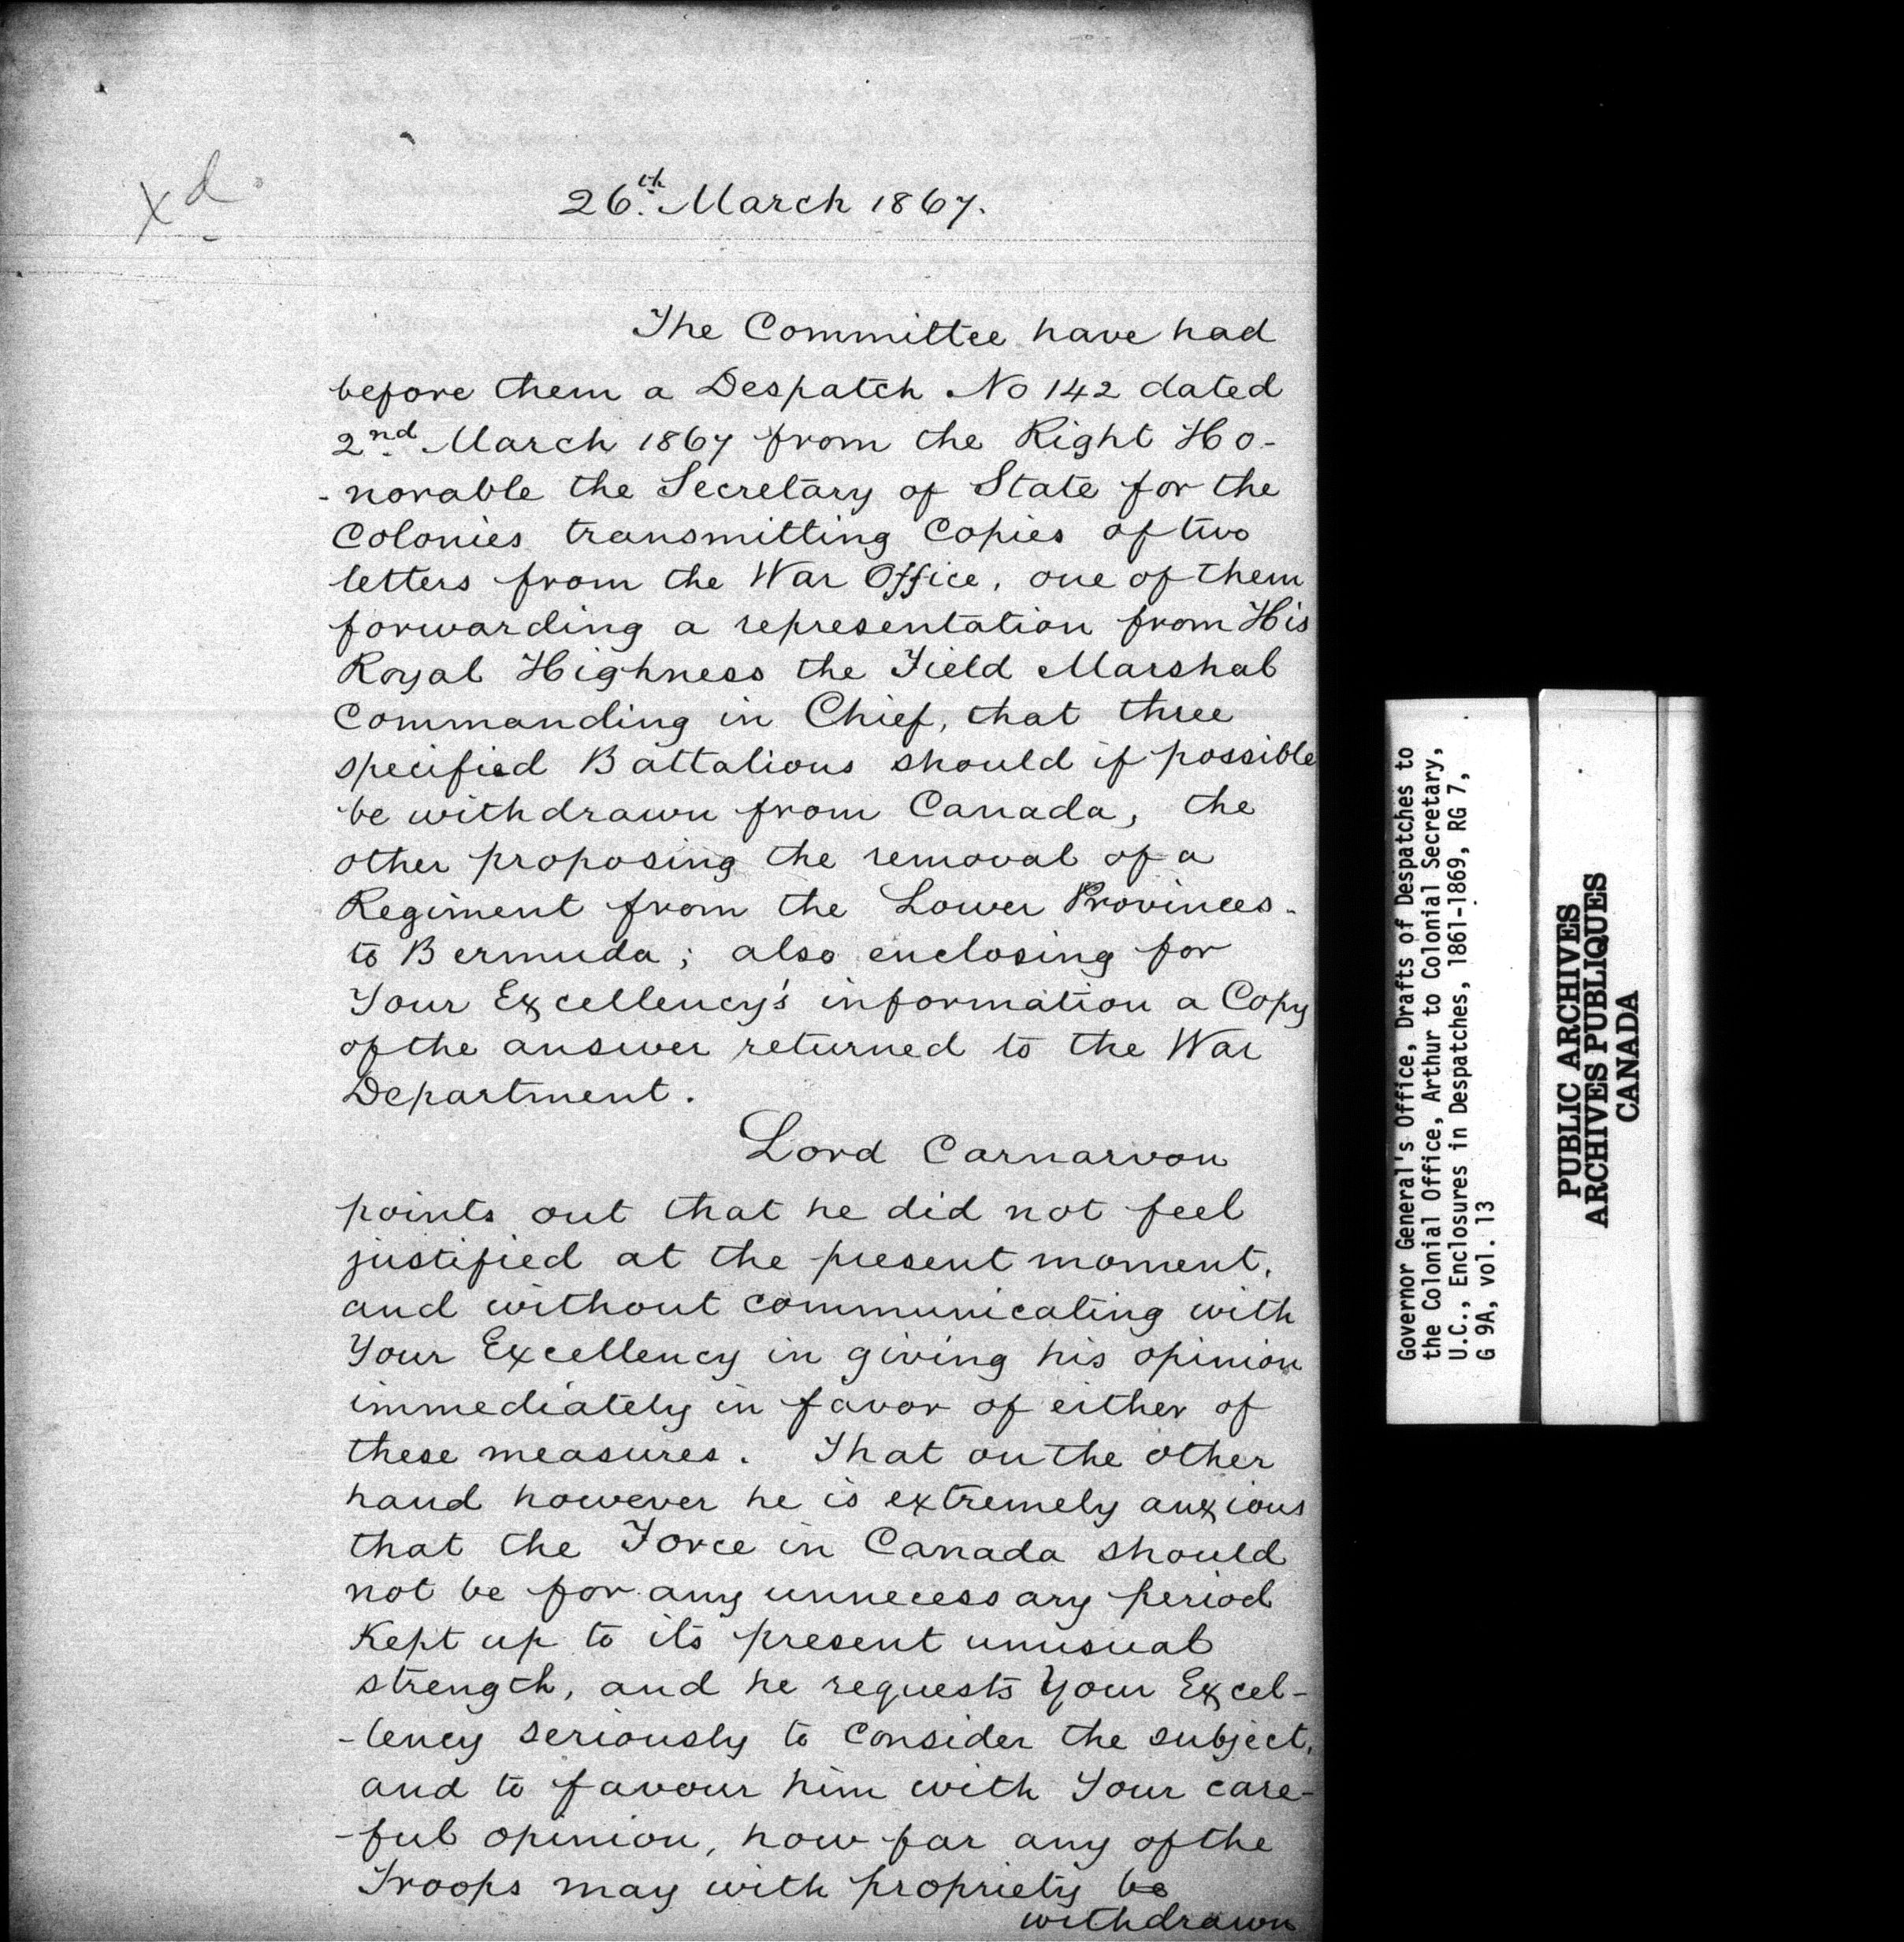 xd
26th. March 1867.
The Committee have had
before them a Despatch No 142 dated
2nd. March 1867 from the Right Ho-
-norable the Secretary of State for the
Colonies transmitting Copies of two
letters from the War Office, one of them
forwarding a representation from His
Royal Highness the Field Marshal
Commanding in Chief, that three
specified Battalions should if possible
be withdrawn from Canada, the
other proposing the removal of a
Regiment from the Lower Provinces.
to Bermuda; also enclosing for
Your Excellency's information a Copy
of the answer returned to the War
Department.
Lord Carnarvon
points out that he did not feel
justified at the present moment,
and without communicating with
Your Excellency in giving his opinion
immediately in favor of either of
these measures. That on the other
hand however he is extremely anxious
that the Force in Canada should
not be for any unnecessary period
Kept up to its present unusual
strength, and he requests Your Excel-
-lency seriously to consider the subject,
and to favour him with Your care-
-ful opinion, how far any of the
Troops may with propriety be
withdrawn
Governor General's Office, Drafts of Despatches to
the Colonial Office, Arthur to Colonial Secretary,
U.C., Enclosures in Despatches, 1861-1869, RG 7,
G 9A, vol. 13
PUBLIC ARCHIVES
ARCHIVES PUBLIQUES
CANADA